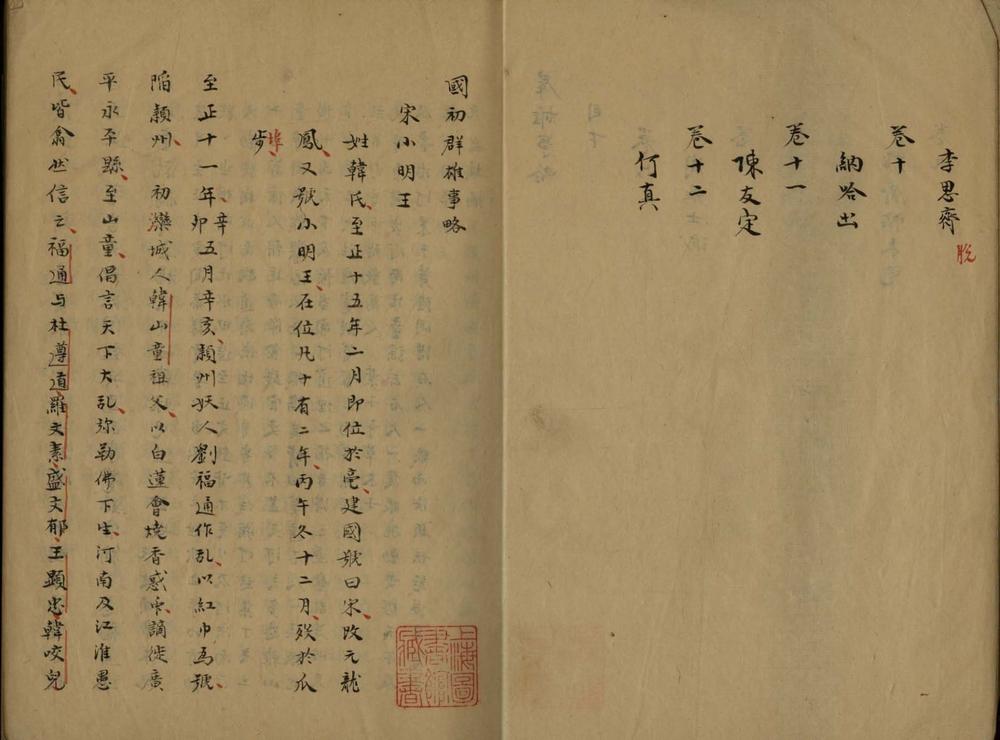 李思齊
脱
卷十
納哈出
卷十一
陳友定
卷十二
何真
國初群雄事略
宋小明王
姓韓氏至正十五年二月即位於亳建國號曰宋改元龍
鳳又號小明王在位凡十有二年丙午冬十二月殁於瓜
埠
步
至正十一年辛卯五月辛亥潁州妖人劉福通作乱以紅巾為號
陷潁州初灤城人韓山童祖父以白蓮會燒香惑衆謫徙廣
平永平縣至山童倡言天下大乱弥勒佛下生河南及江淮愚
民皆翕然信之福通与杜遵道羅文素盛文郁王顯忠韓咬兒
上海圖書館藏書